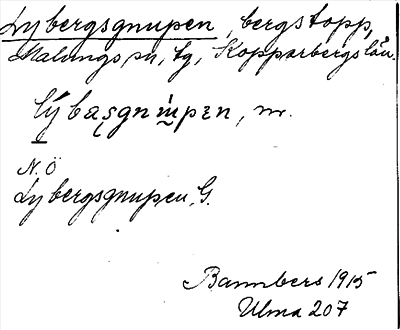 Lybergsgnupen, bergstopp,
Malungs sn, tg, Kopparbergs län.
lýbaςgnùpεn, m.
N. Ö
Lybergsgnupen, G.
Bannbers 1915
Ulma 207